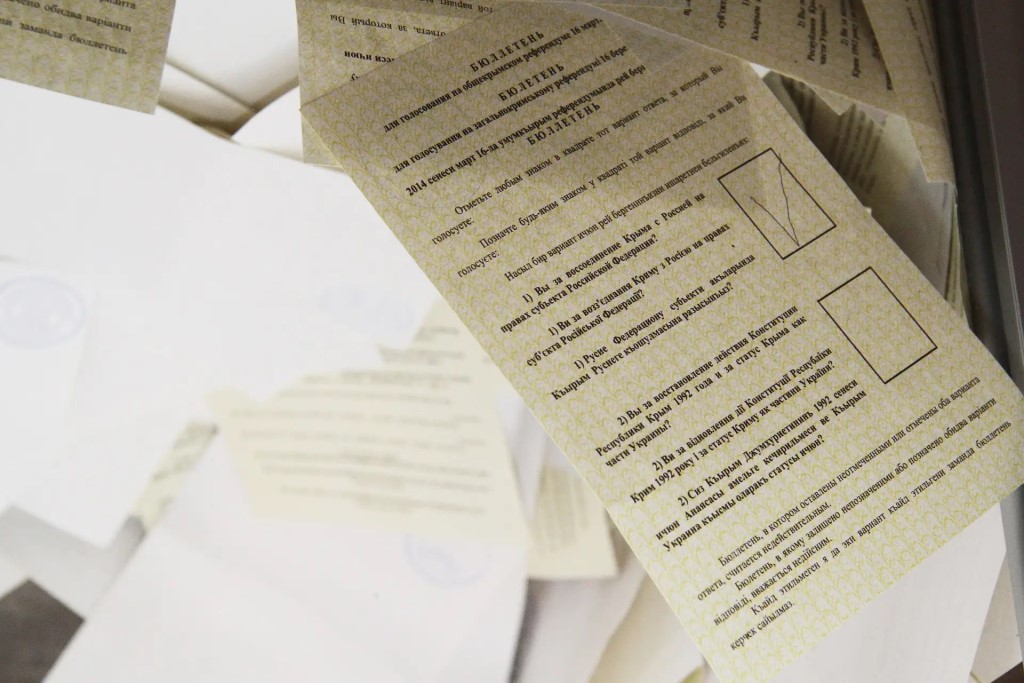 БЮЛЛЕТЕНЬ
для голосования на общекрымском референдуме 16 март
БЮЛЕТЕНЬ
для голосування на загальнокримському референдумі 16 бере
БЮЛЛЕТЕНЬ
2014 сенеси март 16-да умумкъырым референдумында рей бере
Отметьте любым знаком в квадрате тот вариант ответа, за который Вы
голосуете:
Позначте будь-яким знаком у квадраті той варіант відповіді, за який Ви
голосуєте:
Насыл бир вариант ичюн рей бергенинъизни ишаретнен бельгиленъиз:
1) Вы за воссоединение Крыма с Россией на
правах субъекта Российской Федерации?
1) Ви за возз'єднання Криму з Росією на правах
суб'єкта Російської Федерації?
1) Русие Федерациону субъекти акъларында
Къырым Руснеге къошулмасына разысынъыз?
2) Вы за восстановление действия Конституции
Республики Крым 1992 года и за статус Крыма как
части Украины?
2) Ви за відновлення дії Конституції Республіки
Крим 1992 року і за статус Криму як частини України?
2) Сиз Къырым Джумхуриетининъ 1992 сенеси
ичюн Анаясасы амельге кечирильмеси ве Къырым
Украина къысмы оларакъ статусы ичюн?
Бюллетень, в котором оставлены неотмеченными или отмечены оба варианта
ответа, считается недействительным.
Бюлетень, в якому залишено непозначеними або позначено обидва варіанти
відповіді, вважається недійсним.
Къайд этильмеген я да эки вариант къайд этильген заманда бюллетень
керчек сайылмаз.